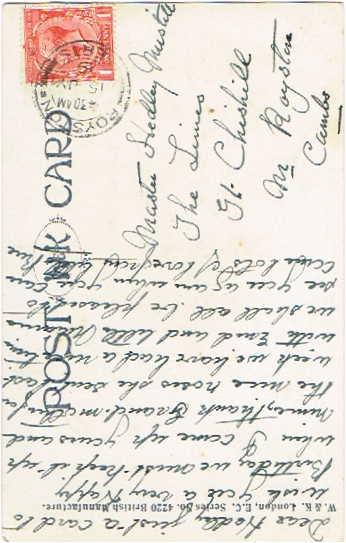 POST CARD
W. & K. London, E.C. Series No. 4220 British Manufacture.
Dear Hedley just a card to
wish you a very Happy
Birthday we must keep it up
when I come up yours and
mine, thank Grand-mother for
the nice roses she sent last
week we have had a nice time
with Enid and tell
we shall all be pleased to
see you again when you can
come lots of love from
Master Hedley
The Limes
Gt. Chishill
Nr Royston
Cambs
ROYSTON
HERTS
4.30 AM
15 JY